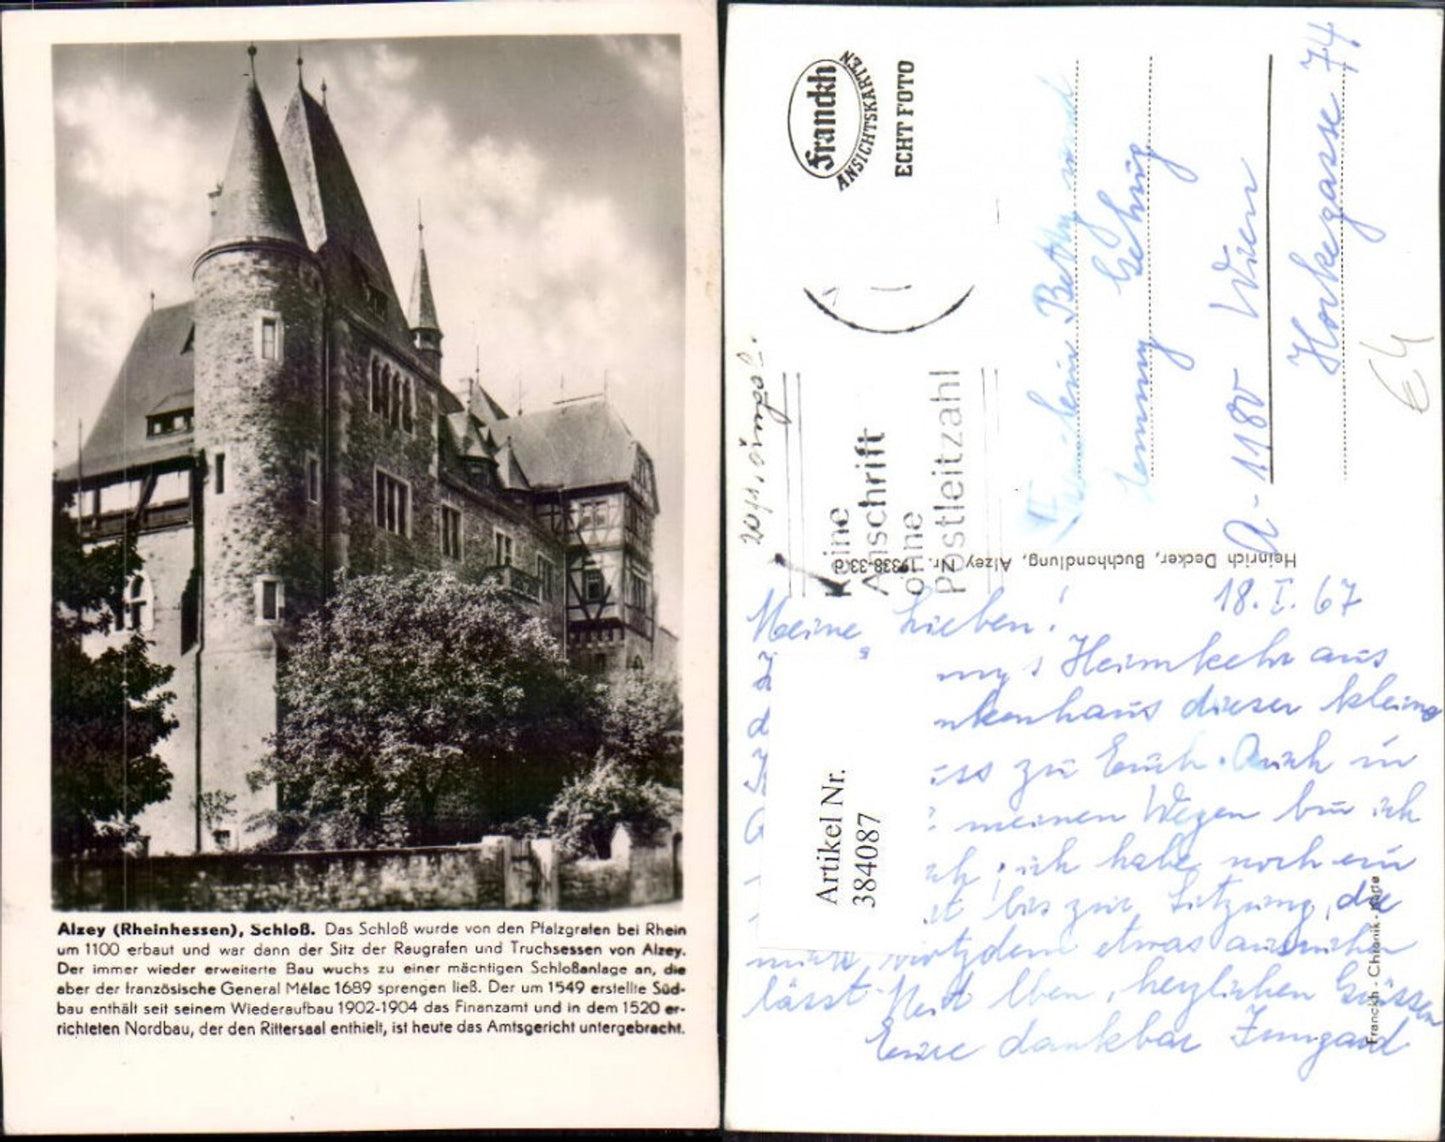 Alzey (Rheinhessen), Schloß. Das Schloß wurde von den Pfalzgrafen bei Rhein
um 1100 erbaut und war dann der Sitz der Raugrafen und Truchsessen von Alzey.
Der immer wieder erweiterte Bau wuchs zu einer mächtigen Schloßanlage an, die
aber der französische General Mélac 1689 sprengen ließ. Der um 1549 erstellte Süd-
bau enthält seit seinem Wiederaufbau 1902-1904 das Finanzamt und in dem 1520 er-
richteten Nordbau, der den Rittersaal enthielt, ist heute das Amtsgericht untergebracht.
Franckh
ANSICHTSKARTEN
ECHT FOTO
Keine
Anschrift
ohne
Postleitzahl
Betty und
Jenny Gehrig
A-1180 Wien
Hockegasse 74
Heinrich Decker, Buchhandlung, Alzey, Nr.
18. I. 67
Meine Lieben!
Heimkehr aus
nkenhaus dieser kleine
zu Euch. Auch in
meinen Wegen bin ich
ich habe noch ein
bis zur Sitzung, die
trotzdem etwas ausruhen
lässt. Mit lben, herzlichen Grüssen
Eure dankbar Irmgard
Artikel Nr.
384087
Franckh - Chronik - Karte